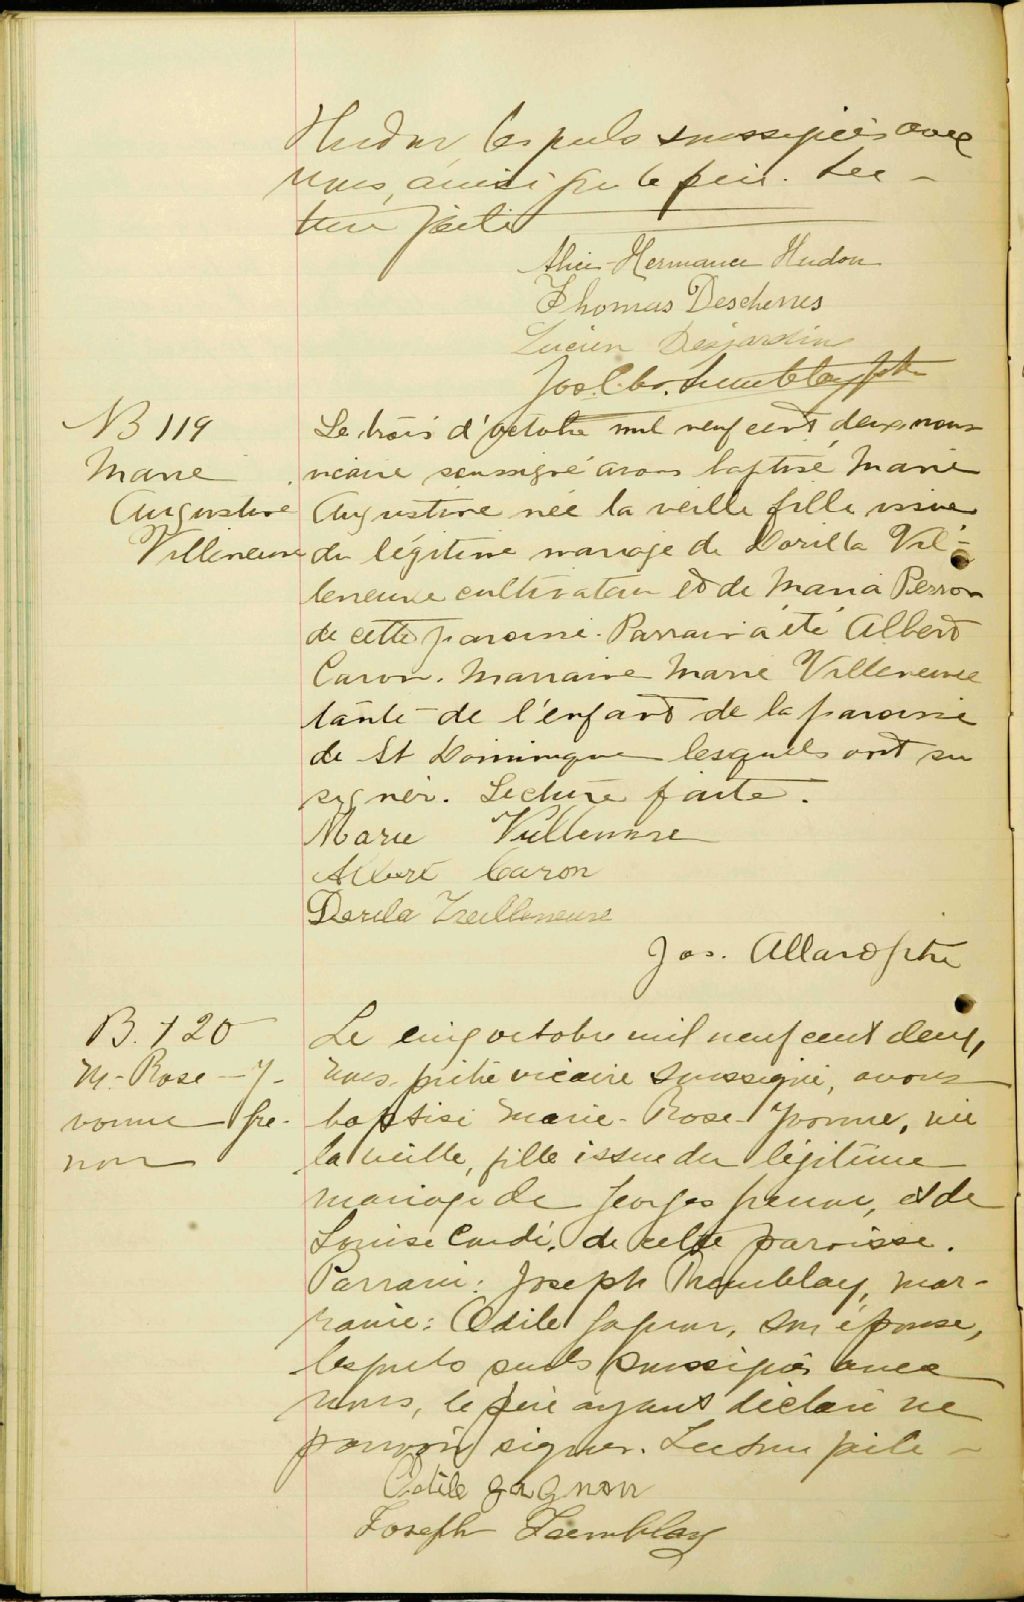 Hudon, lesquels soussignés avec
nous, ainsi que le père. Lec-
ture faite
Alice-Hermance Hudon
Thomas Deschenes
Lucien Desjardins
Jos. Tremblay ptre
B 119
Marie
Augustine
Villeneuve
Le trois d'octobre mil neuf cent deux nous
vicaire soussigné avons baptisé Marie
Augustine née la veille fille issue
du légitime mariage de Dorilla Vil-
leneuve cultivateur et de Maria Perron
de cette paroisse. Parrain a été Albert
Caron. Marraine Marie Villeneuve
tante de l'enfant de la paroisse
de St Dominique lesquels ont su
signer. Lecture faite.
Marie Villeneuve
Albert Caron
Dorila Veilleneuve
Jos. Allard ptre
B. 120
M.-Rose-Y-
vonne Gre-
non
Le cinq octobre mil neuf cent deux,
nous, prêtre vicaire soussigné, avons
baptisé Marie-Rose-Yvonne, née
la veille, fille issue du légitime
mariage de Georges Grenon, et de
Louise de cette paroisse.
Parrain: Joseph Tremblay, mar-
raine: Odile Gagnon, son épouse,
lesquels seuls soussignés avec
nous, le père ayant déclaré ne
pouvoir signer. Lecture faite -
Odile gagnon
Joseph Tremblay